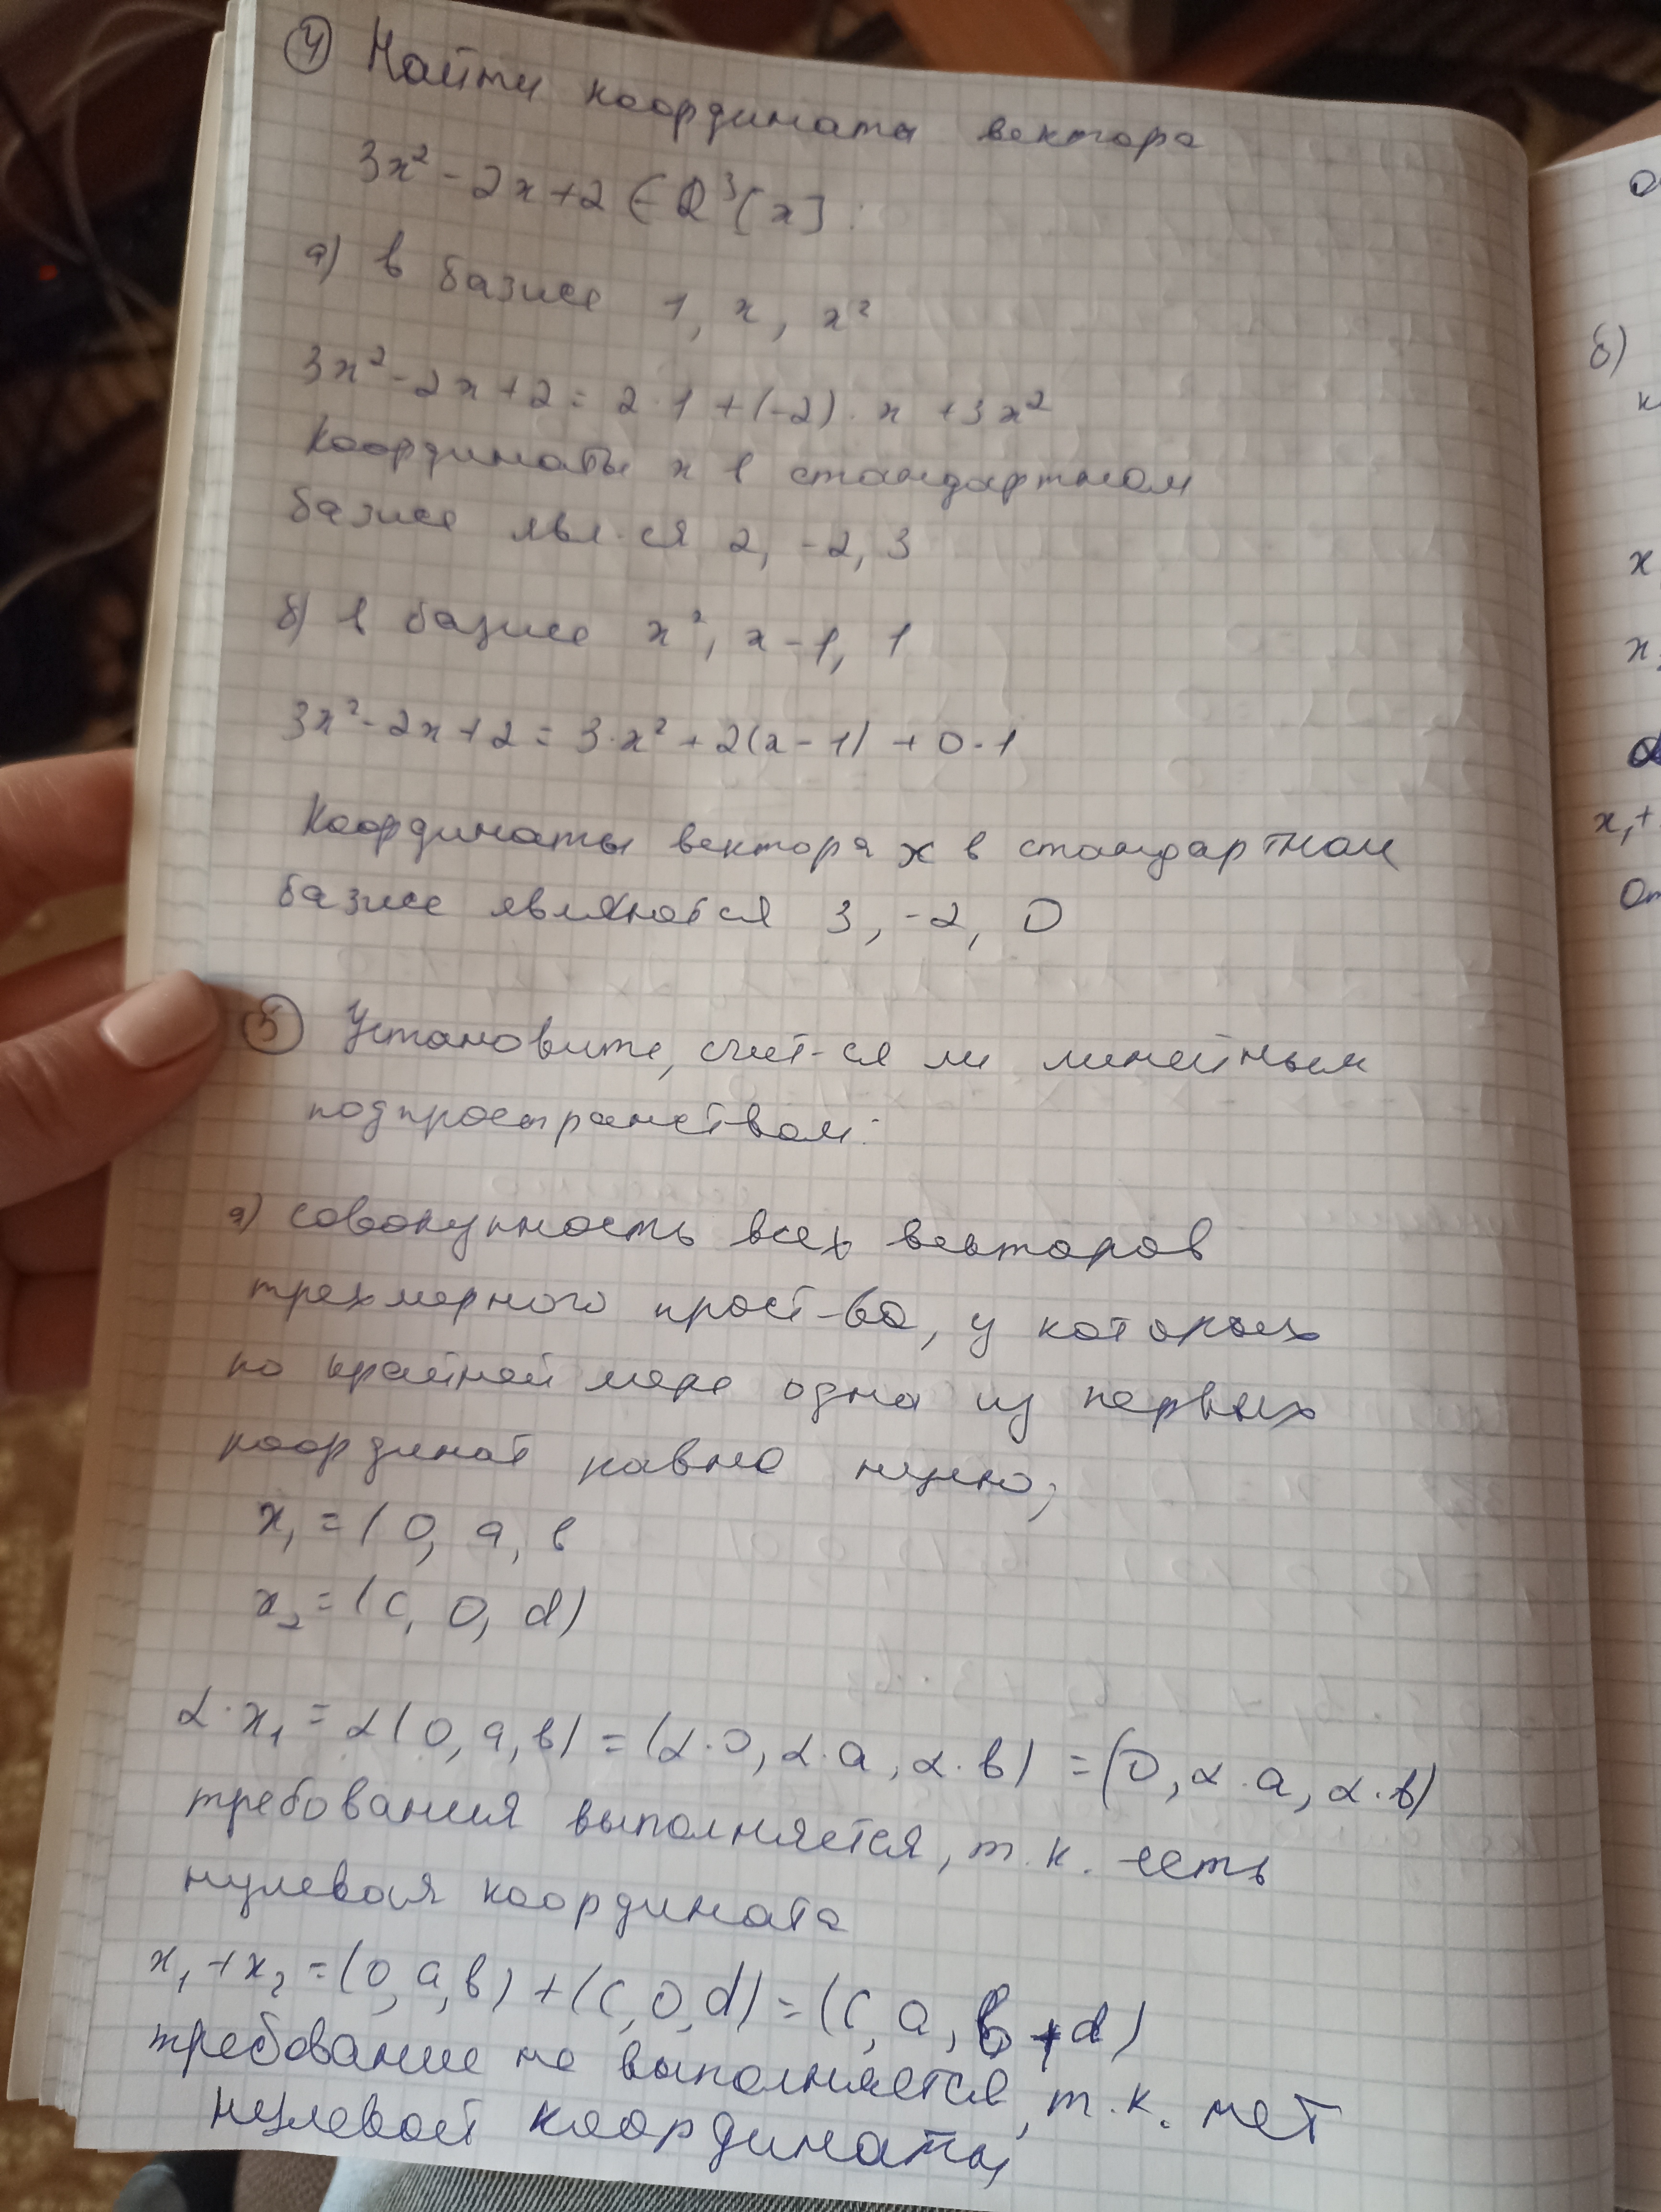 4) Найти координаты вектора
3x² - 2x + 2 ∈ Q³[x]:
а) в базисе 1, x, x²
3x² - 2x + 2 = 2·1 + (-2)·x + 3x²
Координаты x в стандартном
базисе явл-ся 2, -2, 3
б) в базисе x², x-1, 1
3x² - 2x + 2 = 3·x² + 2(x-1) + 0·1
Координаты вектора x в стандартном
базисе являются 3, -2, 0
5) Установите, счит-ся ли линейным
подпространством:
а) совокупность всех векторов
трехмерного прост-ва, у которых
по крайней мере одна из первых
координат равна нулю;
x₁ = (0, a, b
x₂ = (c, 0, d)
α·x₁ = α(0, a, b) = (α·0, α·a, α·b) = (0, α·a, α·b)
требования выполняется, т.к. есть
нулевая координата
x₁ + x₂ = (0, a, b) + (c, 0, d) = (c, a, b + d)
требование не выполняется, т.к. нет
нулевой координаты
б)
x
x₁ +